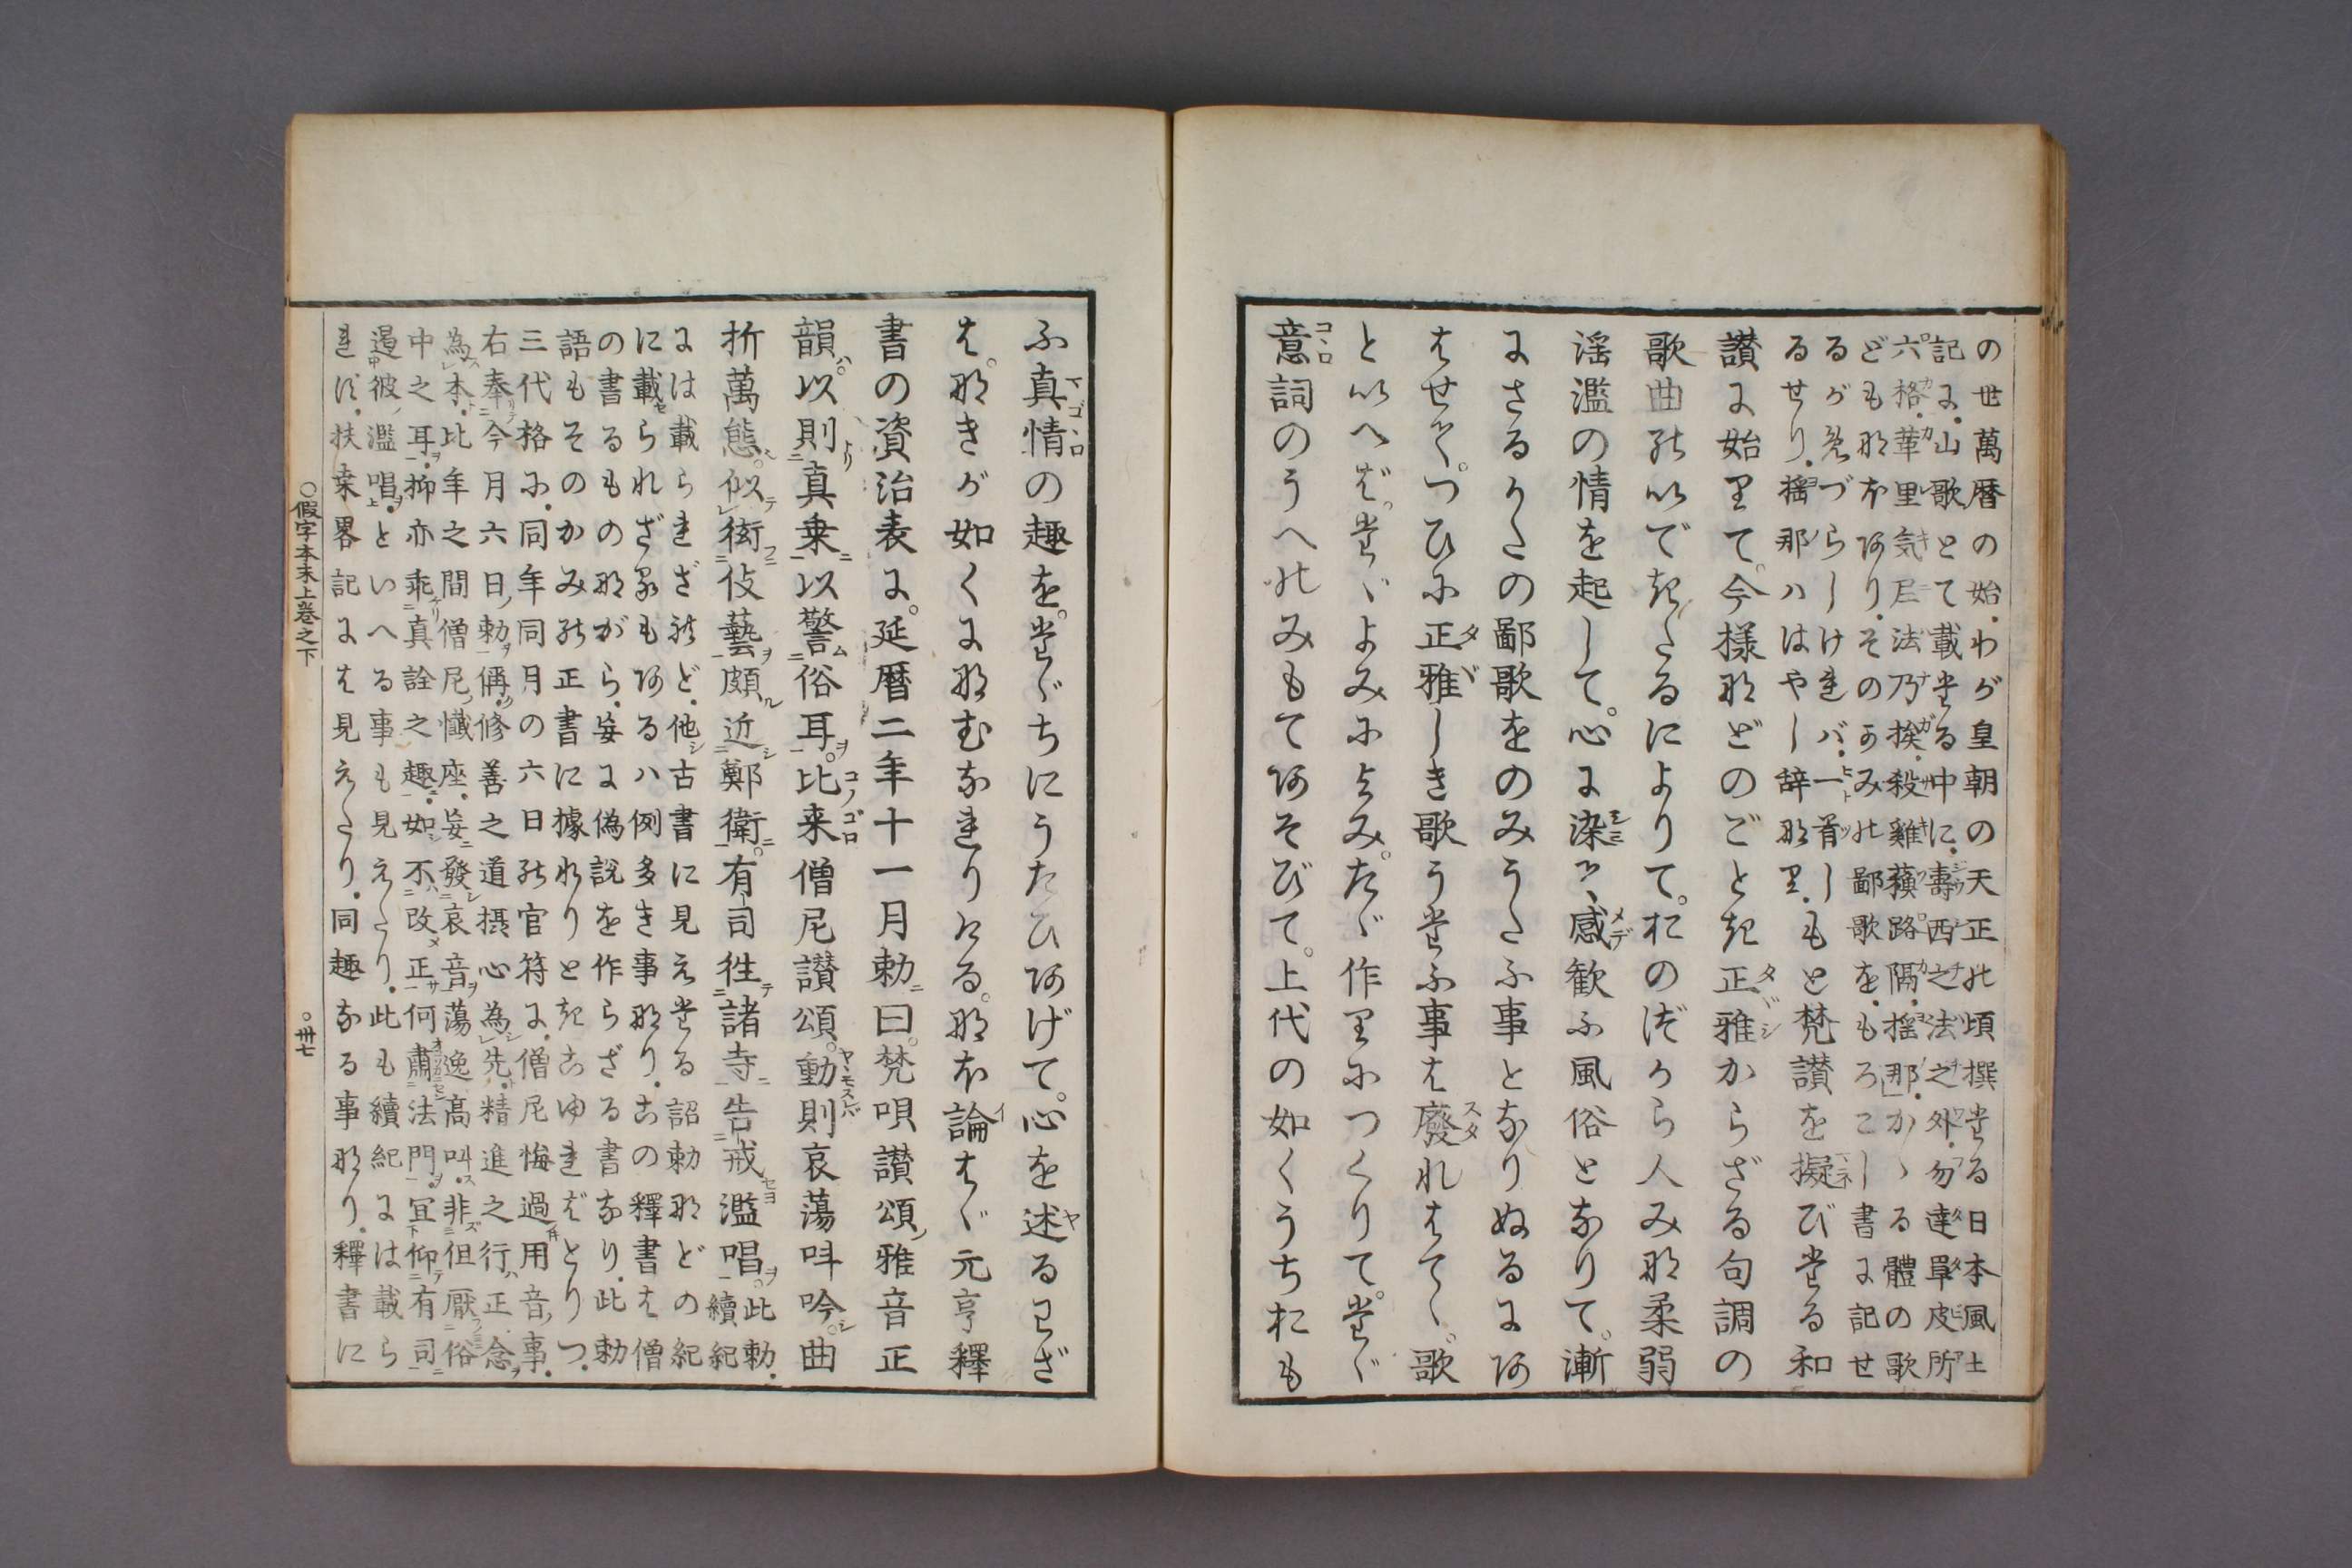 の世萬暦の始．わが皇朝の天正の頃撰たる日本風土
記に．山歌とて載たる中に．壽西之法之外．勿達單皮所
六格．華里気巨法乃挨．殺雞蘓路隔．搖那」．かゝる體の歌
ども那ほあり．そのよみの鄙歌を．もろこし書に記せ
るがめづらしけれバ．一首しるせり．搖那ハはやし辞なり．もと梵讃を擬び たる和
讃に始りて。今様などのごとき正雅からざる句調の
歌曲のいできたるによりて。おのづから人みな柔弱
謡濫の情を起して。心に染ミ感歓ふ風俗となりて。漸
にさるかたの鄙歌をのみうたふ事となりぬるにあ
はせて。つひに正雅しき歌うたふ事は廢れはてゝ。歌
といへど。たゞよみによみ。たゞ作りにつくりて。たゞ
意詞のうへのみもてあそびて。上代の如くうちおも
ふ真情の趣を。たゞちにうたひあげて。心を述るわざ
は。なきが如くになむなれりける。なほ論はゞ元亨釋
書の資治表に。延暦二年十一月勅曰。梵唄讃頌雅音正
韻。以則真乗以警俗耳。比来僧尼讃頌。動則哀蕩呌吟。曲
折萬態。似衒伎藝頗近鄭衛。有司徃諸寺告戒濫唱。此勅．續紀
には載られざれど．他古書に見えたる詔勅などの紀
に載られざるもあるハ例多き事なり．この釋書は僧
の書るものながら．妄に偽説を作らざる書なり．此勅
語もそのかみの正書に據れりときこゆればとりつ．
三代格に．同年同月の六日の官符に．僧尼悔過用音事．
右奉今月六日勅偁．修善之道摂心為先．精進之行正念
為本．比年之間僧尼懺座．妄發哀音蕩逸髙叫．非但厭俗
中之耳．抑亦乖真詮之趣．如不改正何肅法門．宜仰有司
遏彼濫唱．といへる事も見えたり．此も續紀には載ら
れず．扶桒畧記には見えたり．同趣なる事なり．釋書に
○假字本末上卷之下
○卅七